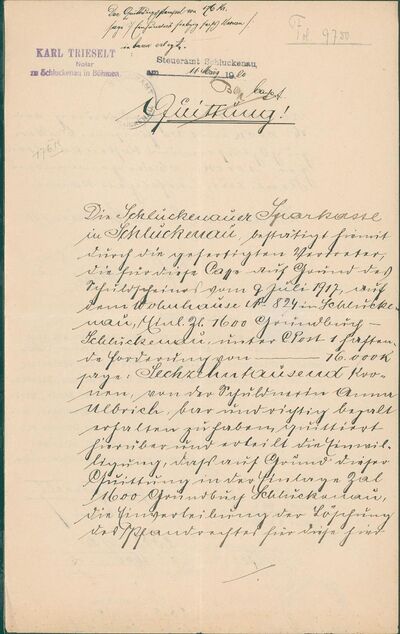 Der Quittungsstempel von 176 K.
sage
in baar erlegt.
Fol 9750
KARL TRIESELT
Notar
zu Schluckenau in Böhmen.
Steueramt Schluckenau,
am 11 März 19 20
176 K
Quittung!
Die Schluckenauer Sparkasse
in Schluckenau, bestätigt hiemit
durch die gefertigten Vertreter,
die für diese Casse auf Grund des
Schuldscheines vom 9 Juli 1917, auf
dem Wohnhause No 824 in Schlucke-
nau, Einl. Zl. 1600 Grundbuch-
Schluckenau, unter Post 1 haften-
de Forderung von — 16.000 K
sage: Sechzehntausend Kro-
nen, von der Schuldnerin Anna
Ulbrich, bar und richtig bezalt
erhalten zu haben, quittiert
hierüber und erteilt die Einwil-
ligung, dass auf Grund dieser
Quittung in der Einlage Zal
1600 Grundbuch Schluckenau,
die Einverleibung der Löschung
des Pfandrechtes für diese hier